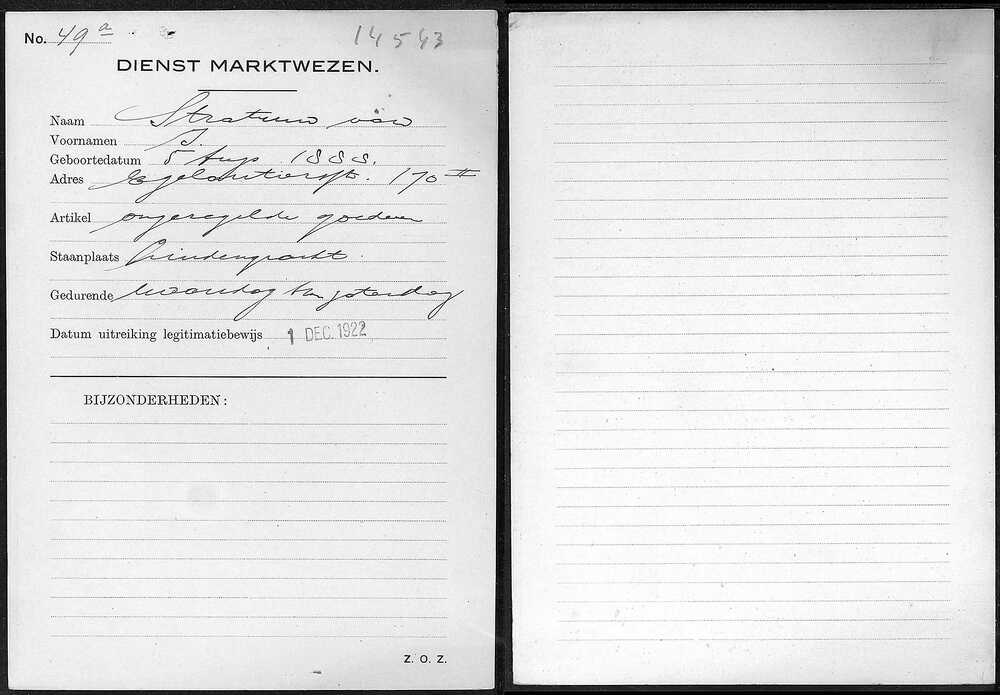 No. 49a 14543
DIENST MARKTWEZEN.
Naam Stratum van
Voornamen J.
Geboortedatum 5 Aug 1888.
Adres Egelantierstr. 170 II
Artikel ongeregelde goederen
Staanplaats Lindengracht
Gedurende maandag t/m zaterdag
Datum uitreiking legitimatiebewijs 1 DEC. 1922
BIJZONDERHEDEN:
Z. O. Z.